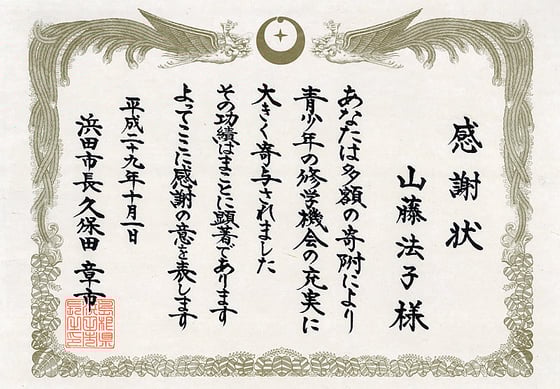 感謝状
山藤法子様
あなたは多額の寄附により
青少年の修学機会の充実に
大きく寄与されました
その功績はまことに顕著であります
よってここに感謝の意を表します
平成二十九年十月一日
浜田市長 久保田 章市
島根県
浜田市
長之印